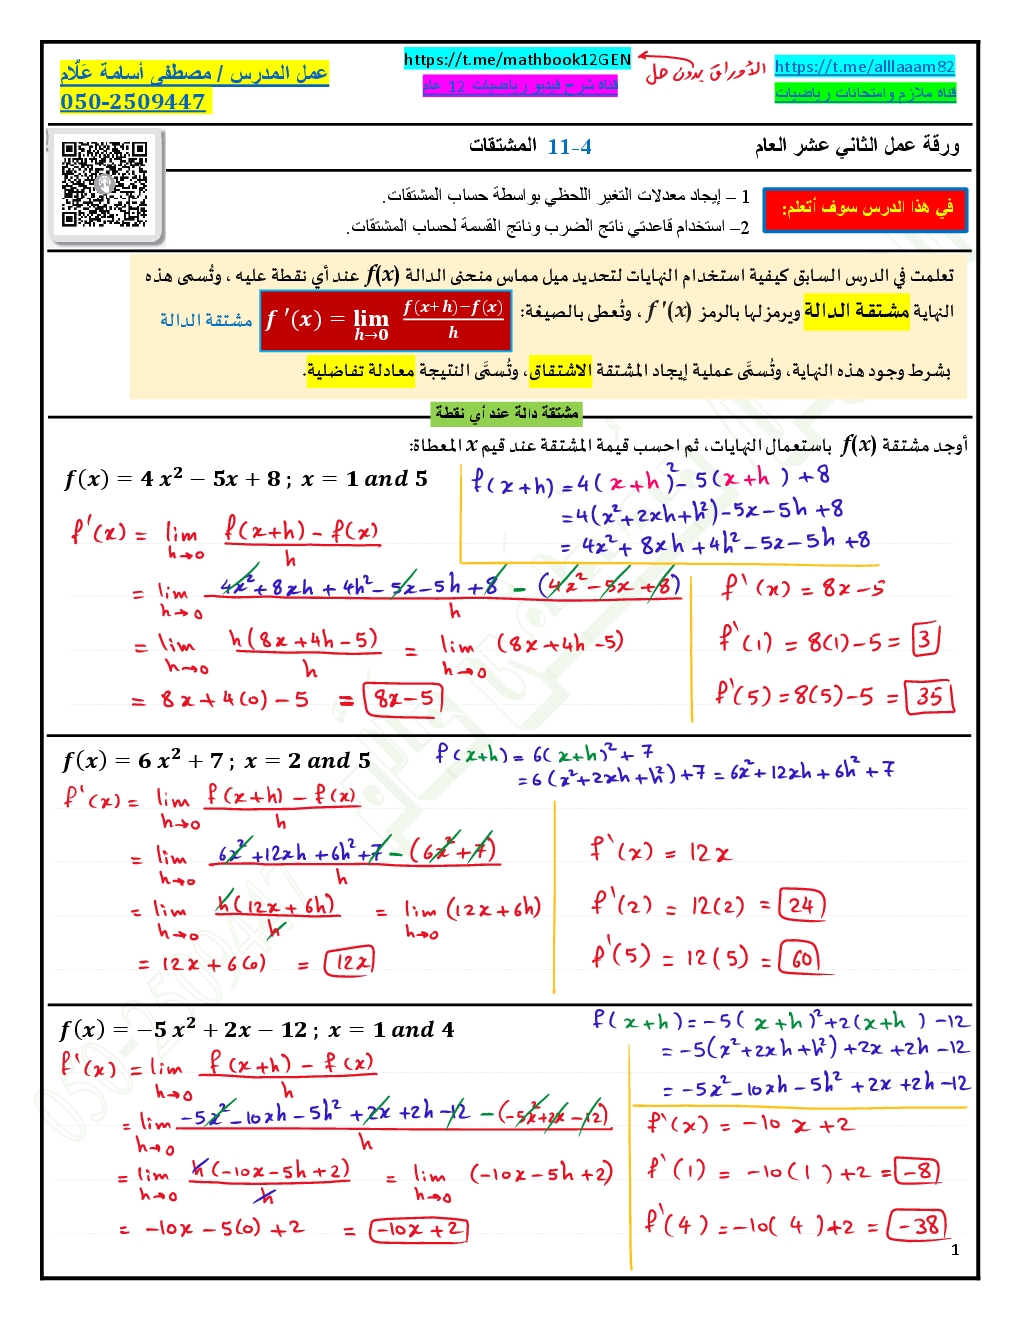 عمل المدرس / مصطفى أسامة عَلَّام
050-2509447
https://t.me/mathbook12GEN
قناة شرح فيديو رياضيات 12 عام
الأوراق بدون حل
https://t.me/alllaaam82
قناة ملازم وامتحانات رياضيات
ورقة عمل الثاني عشر العام
11-4 المشتقات
في هذا الدرس سوف أتعلم:
1 – إيجاد معدلات التغير اللحظي بواسطة حساب المشتقات.
2– استخدام قاعدتي ناتج الضرب وناتج القسمة لحساب المشتقات.
تعلمت في الدرس السابق كيفية استخدام النهايات لتحديد ميل مماس منحنى الدالة f(x) عند أي نقطة عليه ، وتُسمى هذه
النهاية مشتقة الدالة ويرمزلها بالرمز f ′(x) ، وتُعطى بالصيغة: f ′(x) = lim h→0 (f(x+h)−f(x))/h مشتقة الدالة
بشرط وجود هذه النهاية، وتُسمَّى عملية إيجاد المشتقة الاشتقاق، وتُسمَّى النتيجة معادلة تفاضلية.
مشتقة دالة عند أي نقطة
أوجد مشتقة f(x) باستعمال النهايات، ثم احسب قيمة المشتقة عند قيم x المعطاة:
f(x) = 4 x² − 5x + 8 ; x = 1 and 5
f(x+h) = 4(x+h)² − 5(x+h) + 8
= 4(x²+2xh+h²) − 5x − 5h + 8
= 4x² + 8xh + 4h² − 5x − 5h + 8
f'(x) = lim h→0 (f(x+h) − f(x))/h
= lim h→0 (4x² + 8xh + 4h² − 5x − 5h + 8 − (4x² − 5x + 8))/h
= lim h→0 h(8x + 4h − 5)/h = lim h→0 (8x + 4h − 5)
= 8x + 4(0) − 5 = 8x − 5
f'(x) = 8x − 5
f'(1) = 8(1) − 5 = 3
f'(5) = 8(5) − 5 = 35
f(x) = 6 x² + 7 ; x = 2 and 5
f(x+h) = 6(x+h)² + 7
= 6(x²+2xh+h²) + 7 = 6x² + 12xh + 6h² + 7
f'(x) = lim h→0 (f(x+h) − f(x))/h
= lim h→0 (6x² + 12xh + 6h² + 7 − (6x² + 7))/h
= lim h→0 h(12x + 6h)/h = lim h→0 (12x + 6h)
= 12x + 6(0) = 12x
f'(x) = 12x
f'(2) = 12(2) = 24
f'(5) = 12(5) = 60
f(x) = −5 x² + 2x − 12 ; x = 1 and 4
f(x+h) = −5(x+h)² + 2(x+h) − 12
= −5(x²+2xh+h²) + 2x + 2h − 12
= −5x² − 10xh − 5h² + 2x + 2h − 12
f'(x) = lim h→0 (f(x+h) − f(x))/h
= lim h→0 (−5x² − 10xh − 5h² + 2x + 2h − 12 − (−5x² + 2x − 12))/h
= lim h→0 h(−10x − 5h + 2)/h = lim h→0 (−10x − 5h + 2)
= −10x − 5(0) + 2 = −10x + 2
f'(x) = −10x + 2
f'(1) = −10(1) + 2 = −8
f'(4) = −10(4) + 2 = −38
1